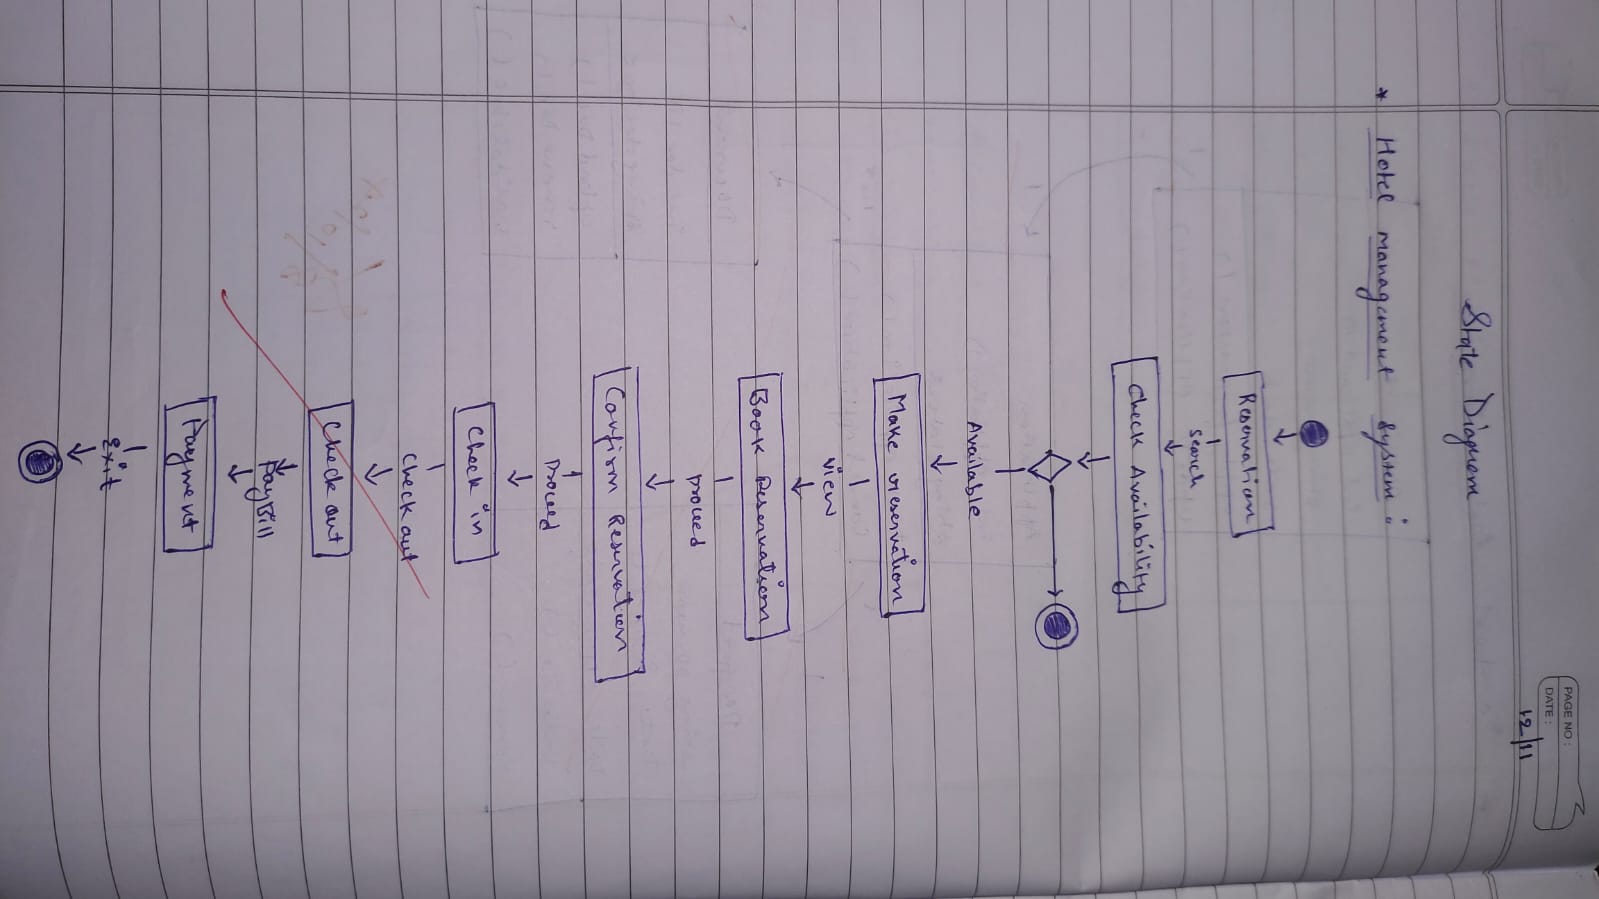 PAGE NO:
DATE:
12/11
State Diagram
* Hotel management system:
Reservation
search
Check Availability
Available
Make reservation
view
Book Reservation
proceed
Confirm Reservation
Proceed
Check in
Check out
Check out
Pay Bill
Payment
Exit